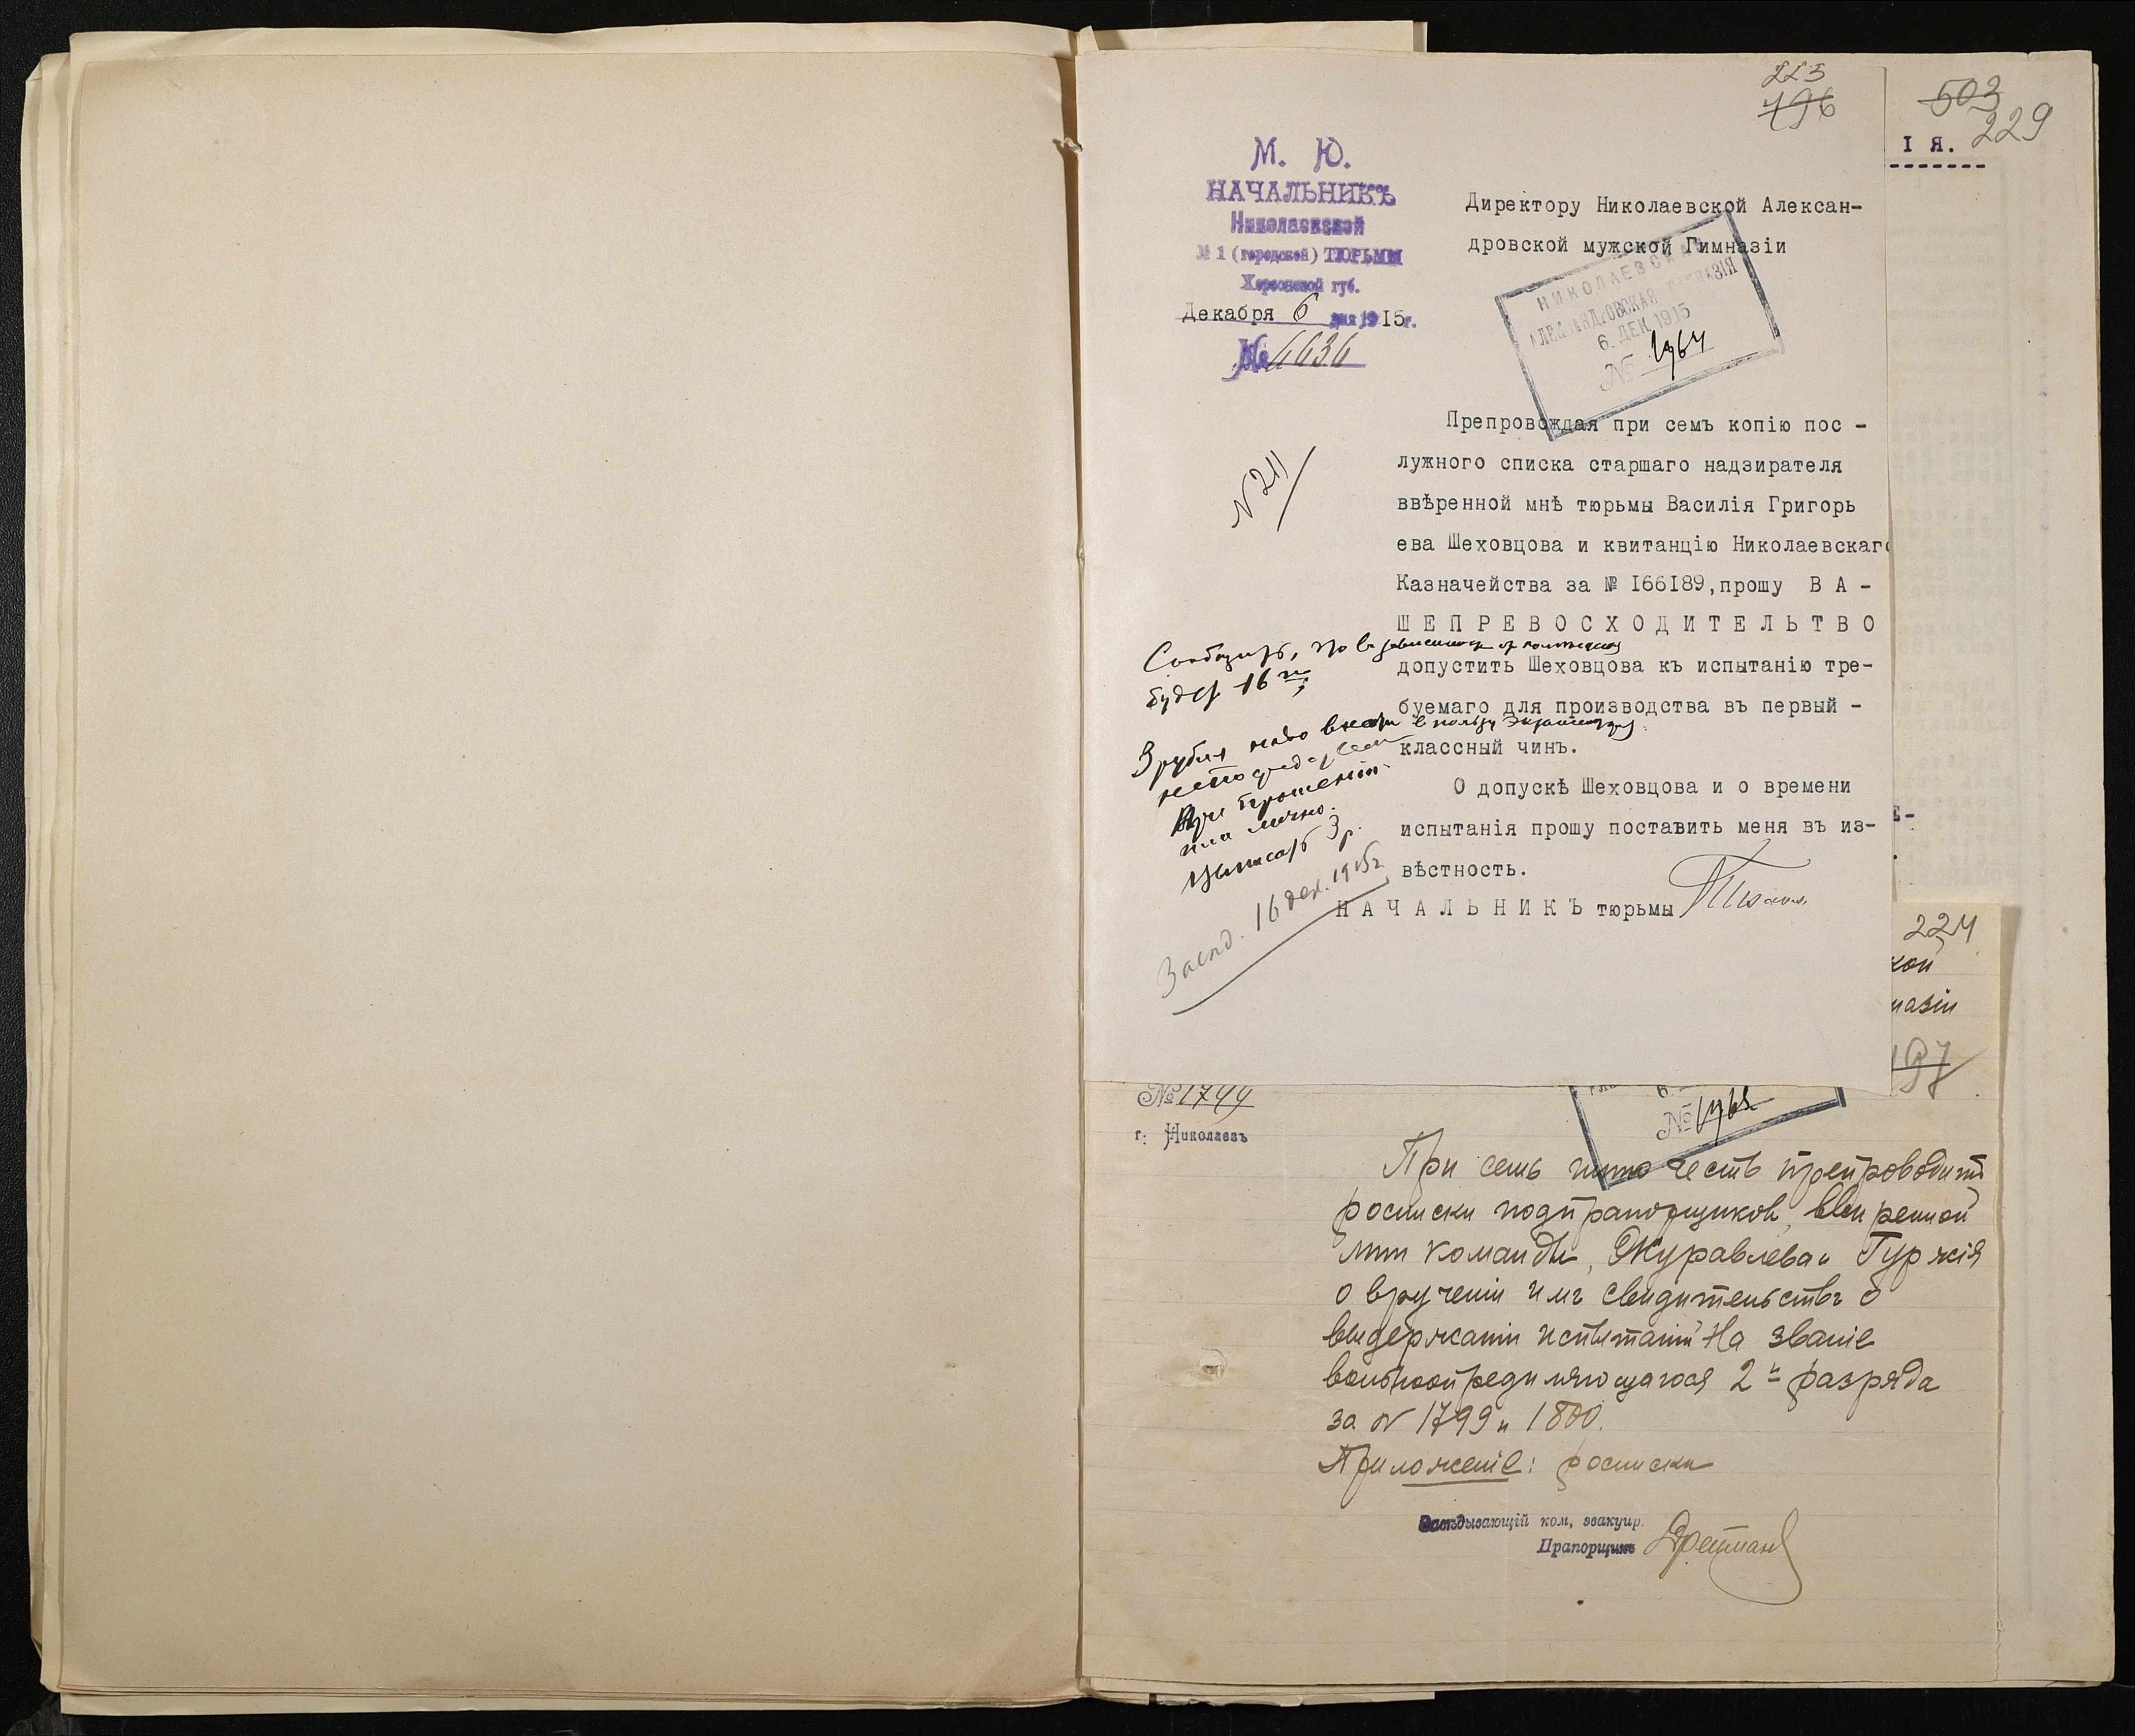 223
496
503
229
І Я.
М. Ю.
НАЧАЛЬНИКЪ
Николаевской
№ 1 (городской) ТЮРЬМЫ
Херсонской губ.
Декабря 6 дня 1915г.
№ 4636
Директору Николаевской Алексан-
дровской мужской Гимназіи
НИКОЛАЕВСКАЯ
АЛЕКСАНДРОВСКАЯ ГИМНАЗІЯ
6. ДЕК. 1915
№ 1964
N 211
Препровождая при семъ копію пос -
лужного списка старшаго надзирателя
ввѣренной мнѣ тюрьмы Василія Григорь
ева Шеховцова и квитанцію Николаевскаго
Казначейства за № І66І89,прошу В А -
Ш Е П Р Е В О С Х О Д И Т Е Л Ь Т В О
допустить Шеховцова къ испытанію тре-
буемаго для производства въ первый -
классный чинъ.
О допускѣ Шеховцова и о времени
испытанія прошу поставить меня въ из-
вѣстность.
Н А Ч А Л Ь Н И К Ъ тюрьмы
Сообщить, что
будет 16 го
3 рубля надо внести в пользу
при прошении
или лично.
16 дек. 1915г
224
кой
мазіи
197
№ 1744
г. Николаевъ
6.
№
При семъ имѣю честь препроводить
росписки подпрапорщиковъ, ввѣренной
мнѣ команды, Журавлева и Гуржія
о врученіи имъ свидѣтельствъ о
выдержаніи испытаній на званіе
вольноопредѣляющагося 2го разряда
за N 1799 и 1800.
Приложеніе: росписки
Завѣдывающій ком, эвакуир.
Прапорщикъ